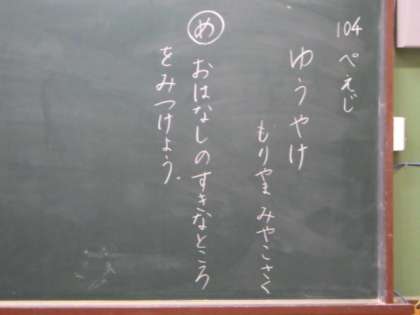 104 ぺえじ
ゆうやけ
もりやま みやこさく
め おはなしのすきなところ
をみつけよう。